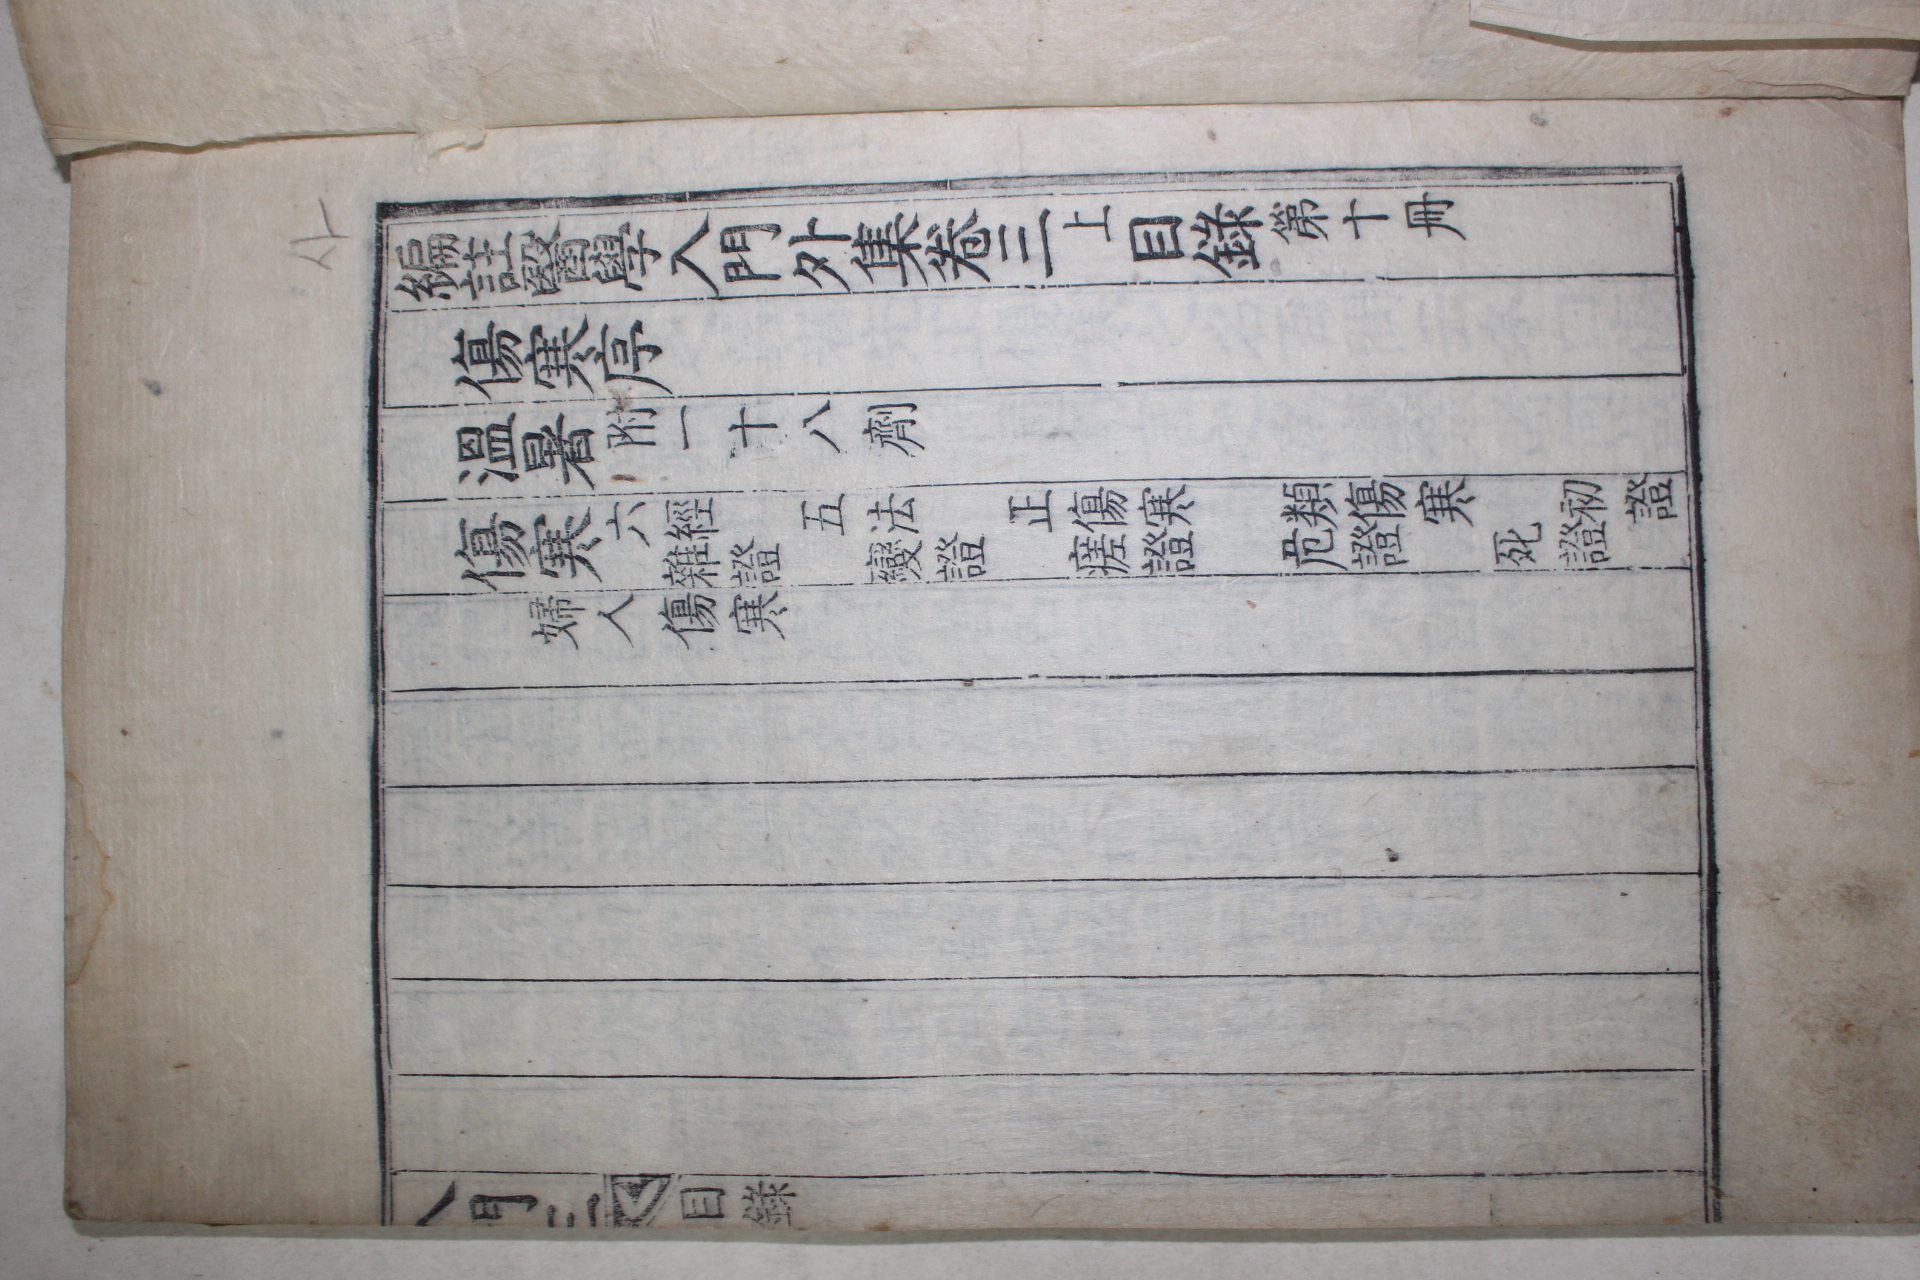 사
編註醫學入門外集卷三上目錄第十冊
傷寒序
溫暑附一十八劑
傷寒六經 五法 正傷寒 類傷寒 初證
雜證 變證 瘥證 危證 死證
婦人傷寒
入門三 目錄